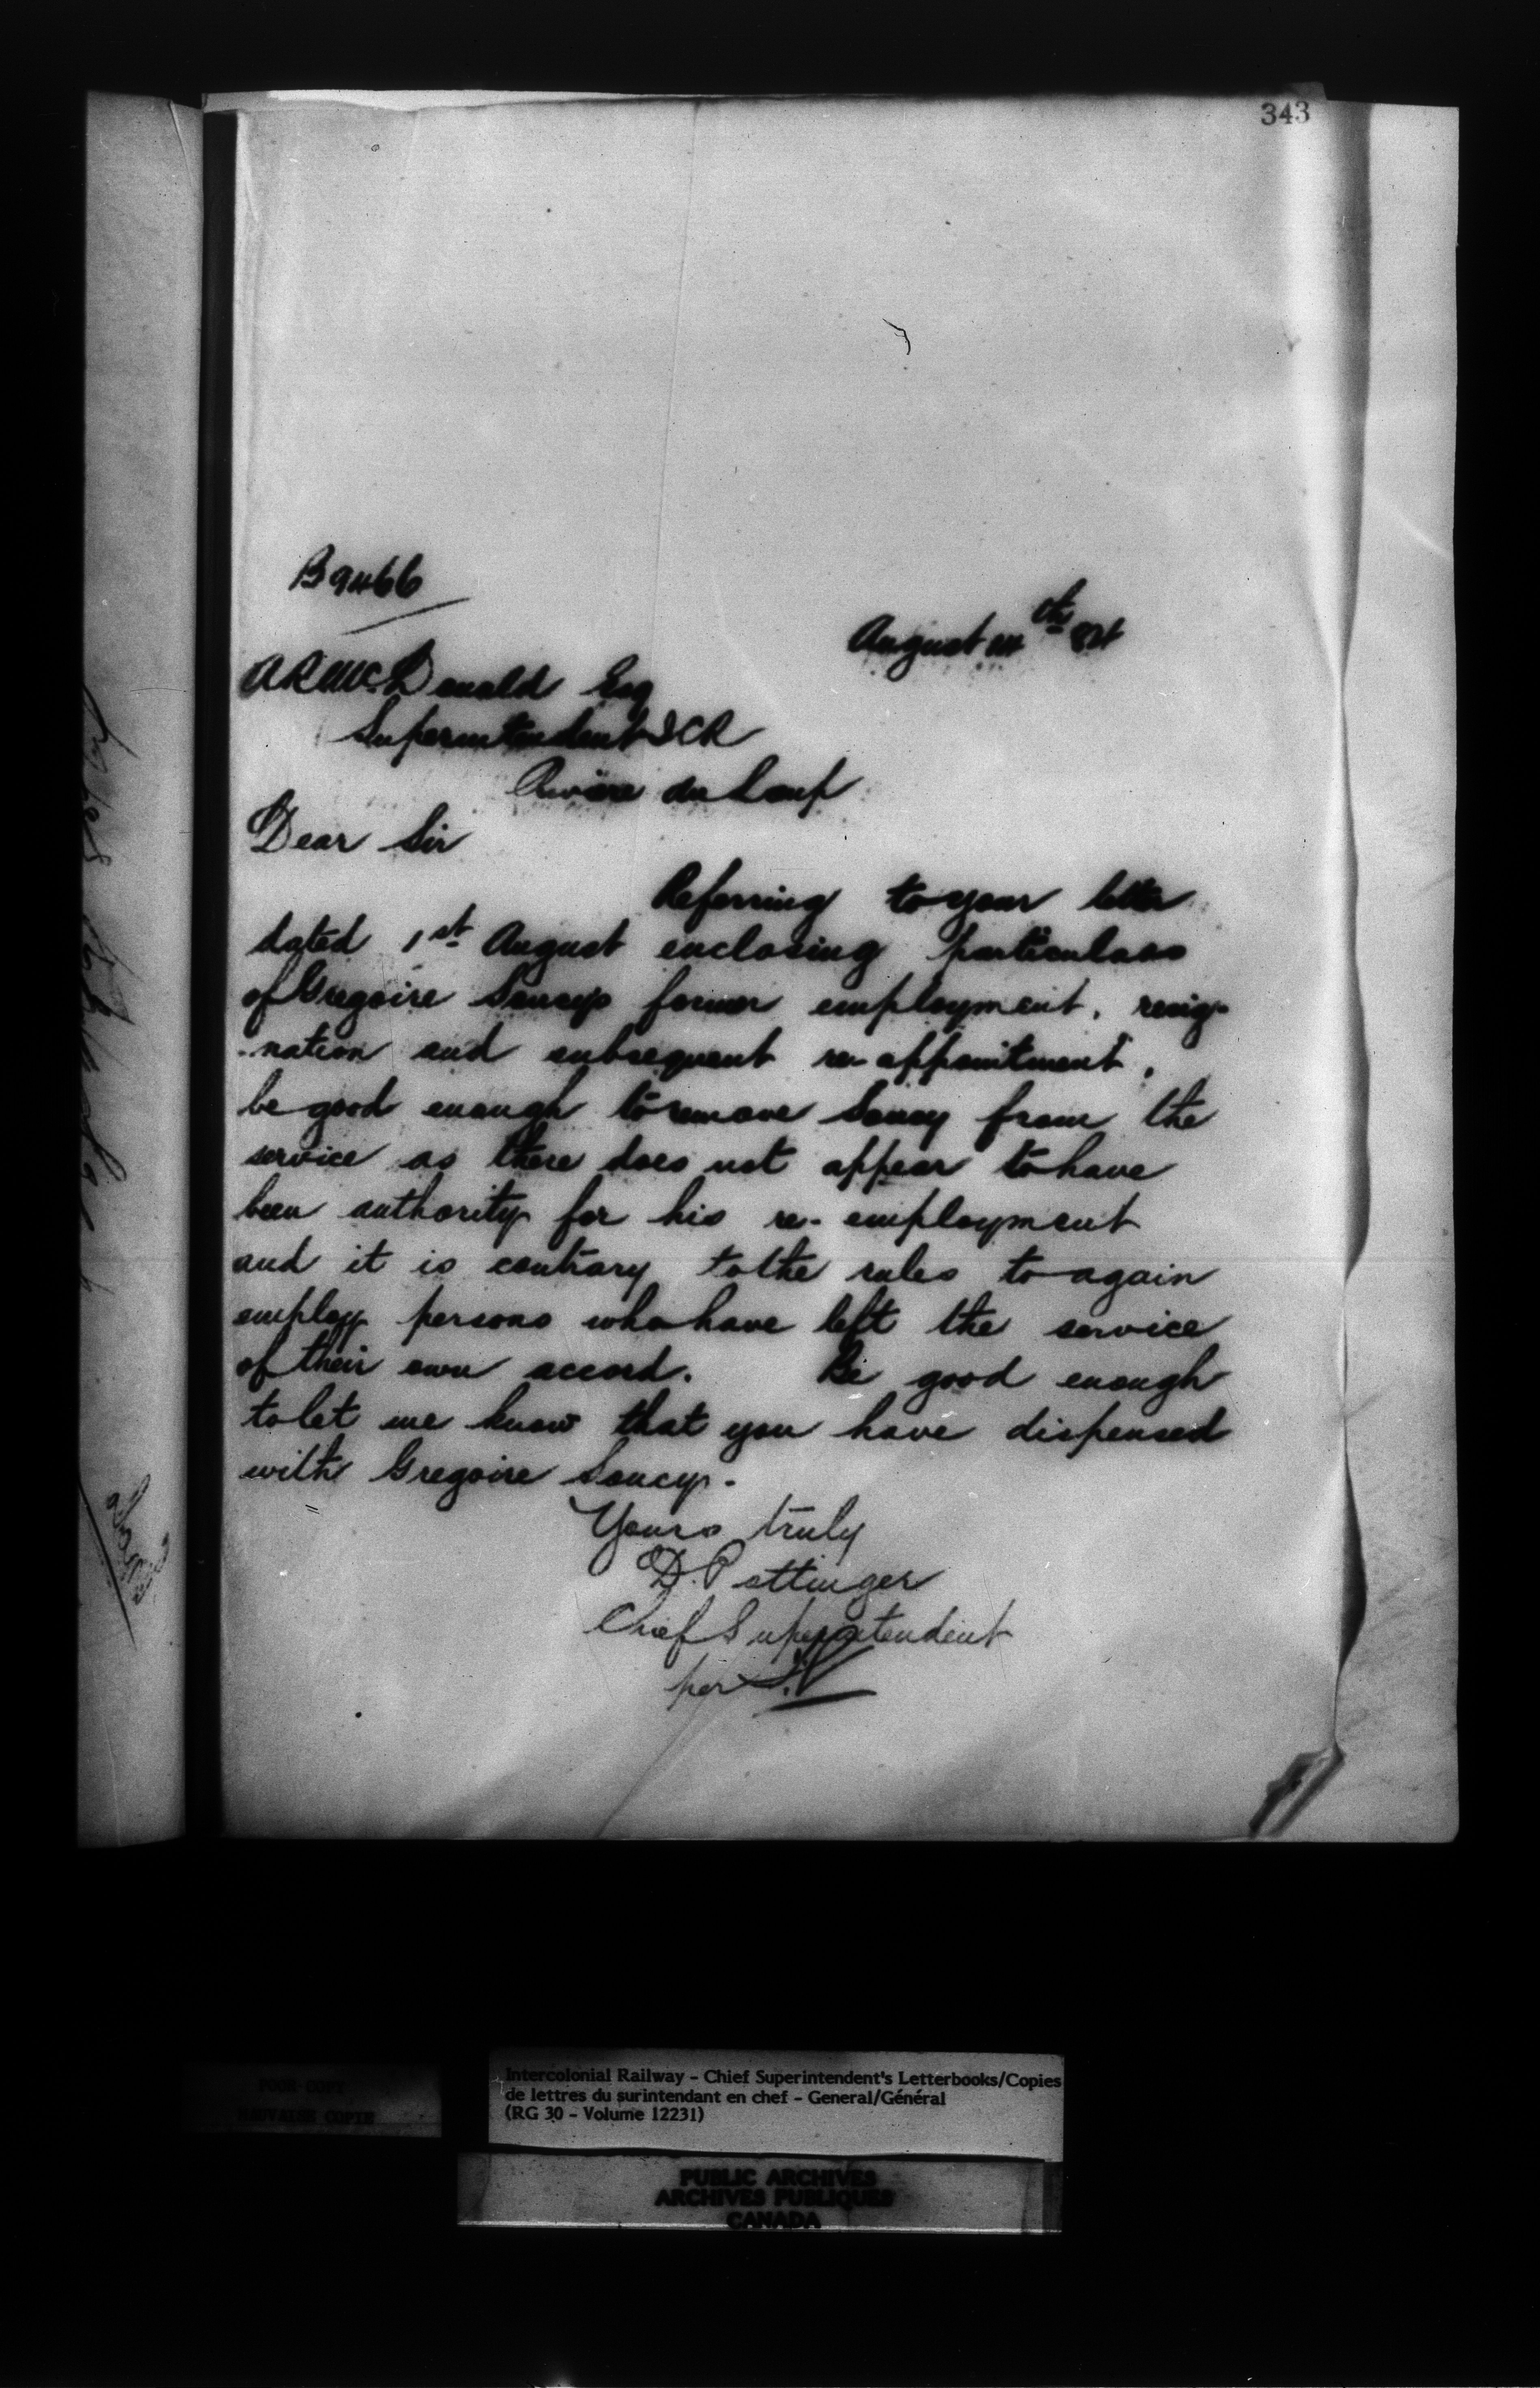 343
B9466
August 14th
A R McDonald Esq
Superintendent ICR
Riviere du Loup
Dear Sir
Referring to your letter
dated 1st August enclosing particulars
of Gregoire Soucys former employment, resig-
-nation and subsequent re-appointment,
be good enough to remove Soucy from the
service as there does not appear to have
been authority for his re-employment
and it is contrary to the rules to again
employ persons who have left the service
of their own accord. Be good enough
to let me know that you have dispensed
with Gregoire Soucy.
Yours truly
D. Pottinger
Chief Superintendent
per
POOR COPY
MAUVAISE COPIE
Intercolonial Railway - Chief Superintendent's Letterbooks/Copies
de lettres du surintendant en chef - General/Général
(RG 30 - Volume 12231)
PUBLIC ARCHIVES
ARCHIVES PUBLIQUES
CANADA